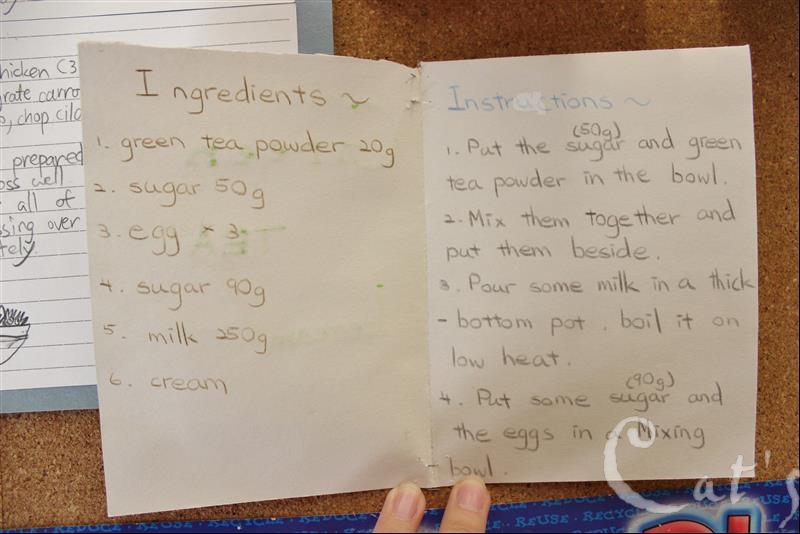 hicken (3
grate carro
, chop cila
prepared
oss well
all of
sing over
tely.
Ingredients ~
1. green tea powder 20g
2. sugar 50g
3. egg × 3
4. sugar 90g
5. milk 250g
6. cream
Instructions ~
(50g)
1. Put the sugar and green
tea powder in the bowl.
2. Mix them together and
put them beside.
3. Pour some milk in a thick
- bottom pot. boil it on
low heat.
(90g)
4. Put some sugar and
the eggs in a Mixing
bowl.
Cat's
REDUCE · REUSE · RECYCLE
REDUCE · REUSE · RECYC